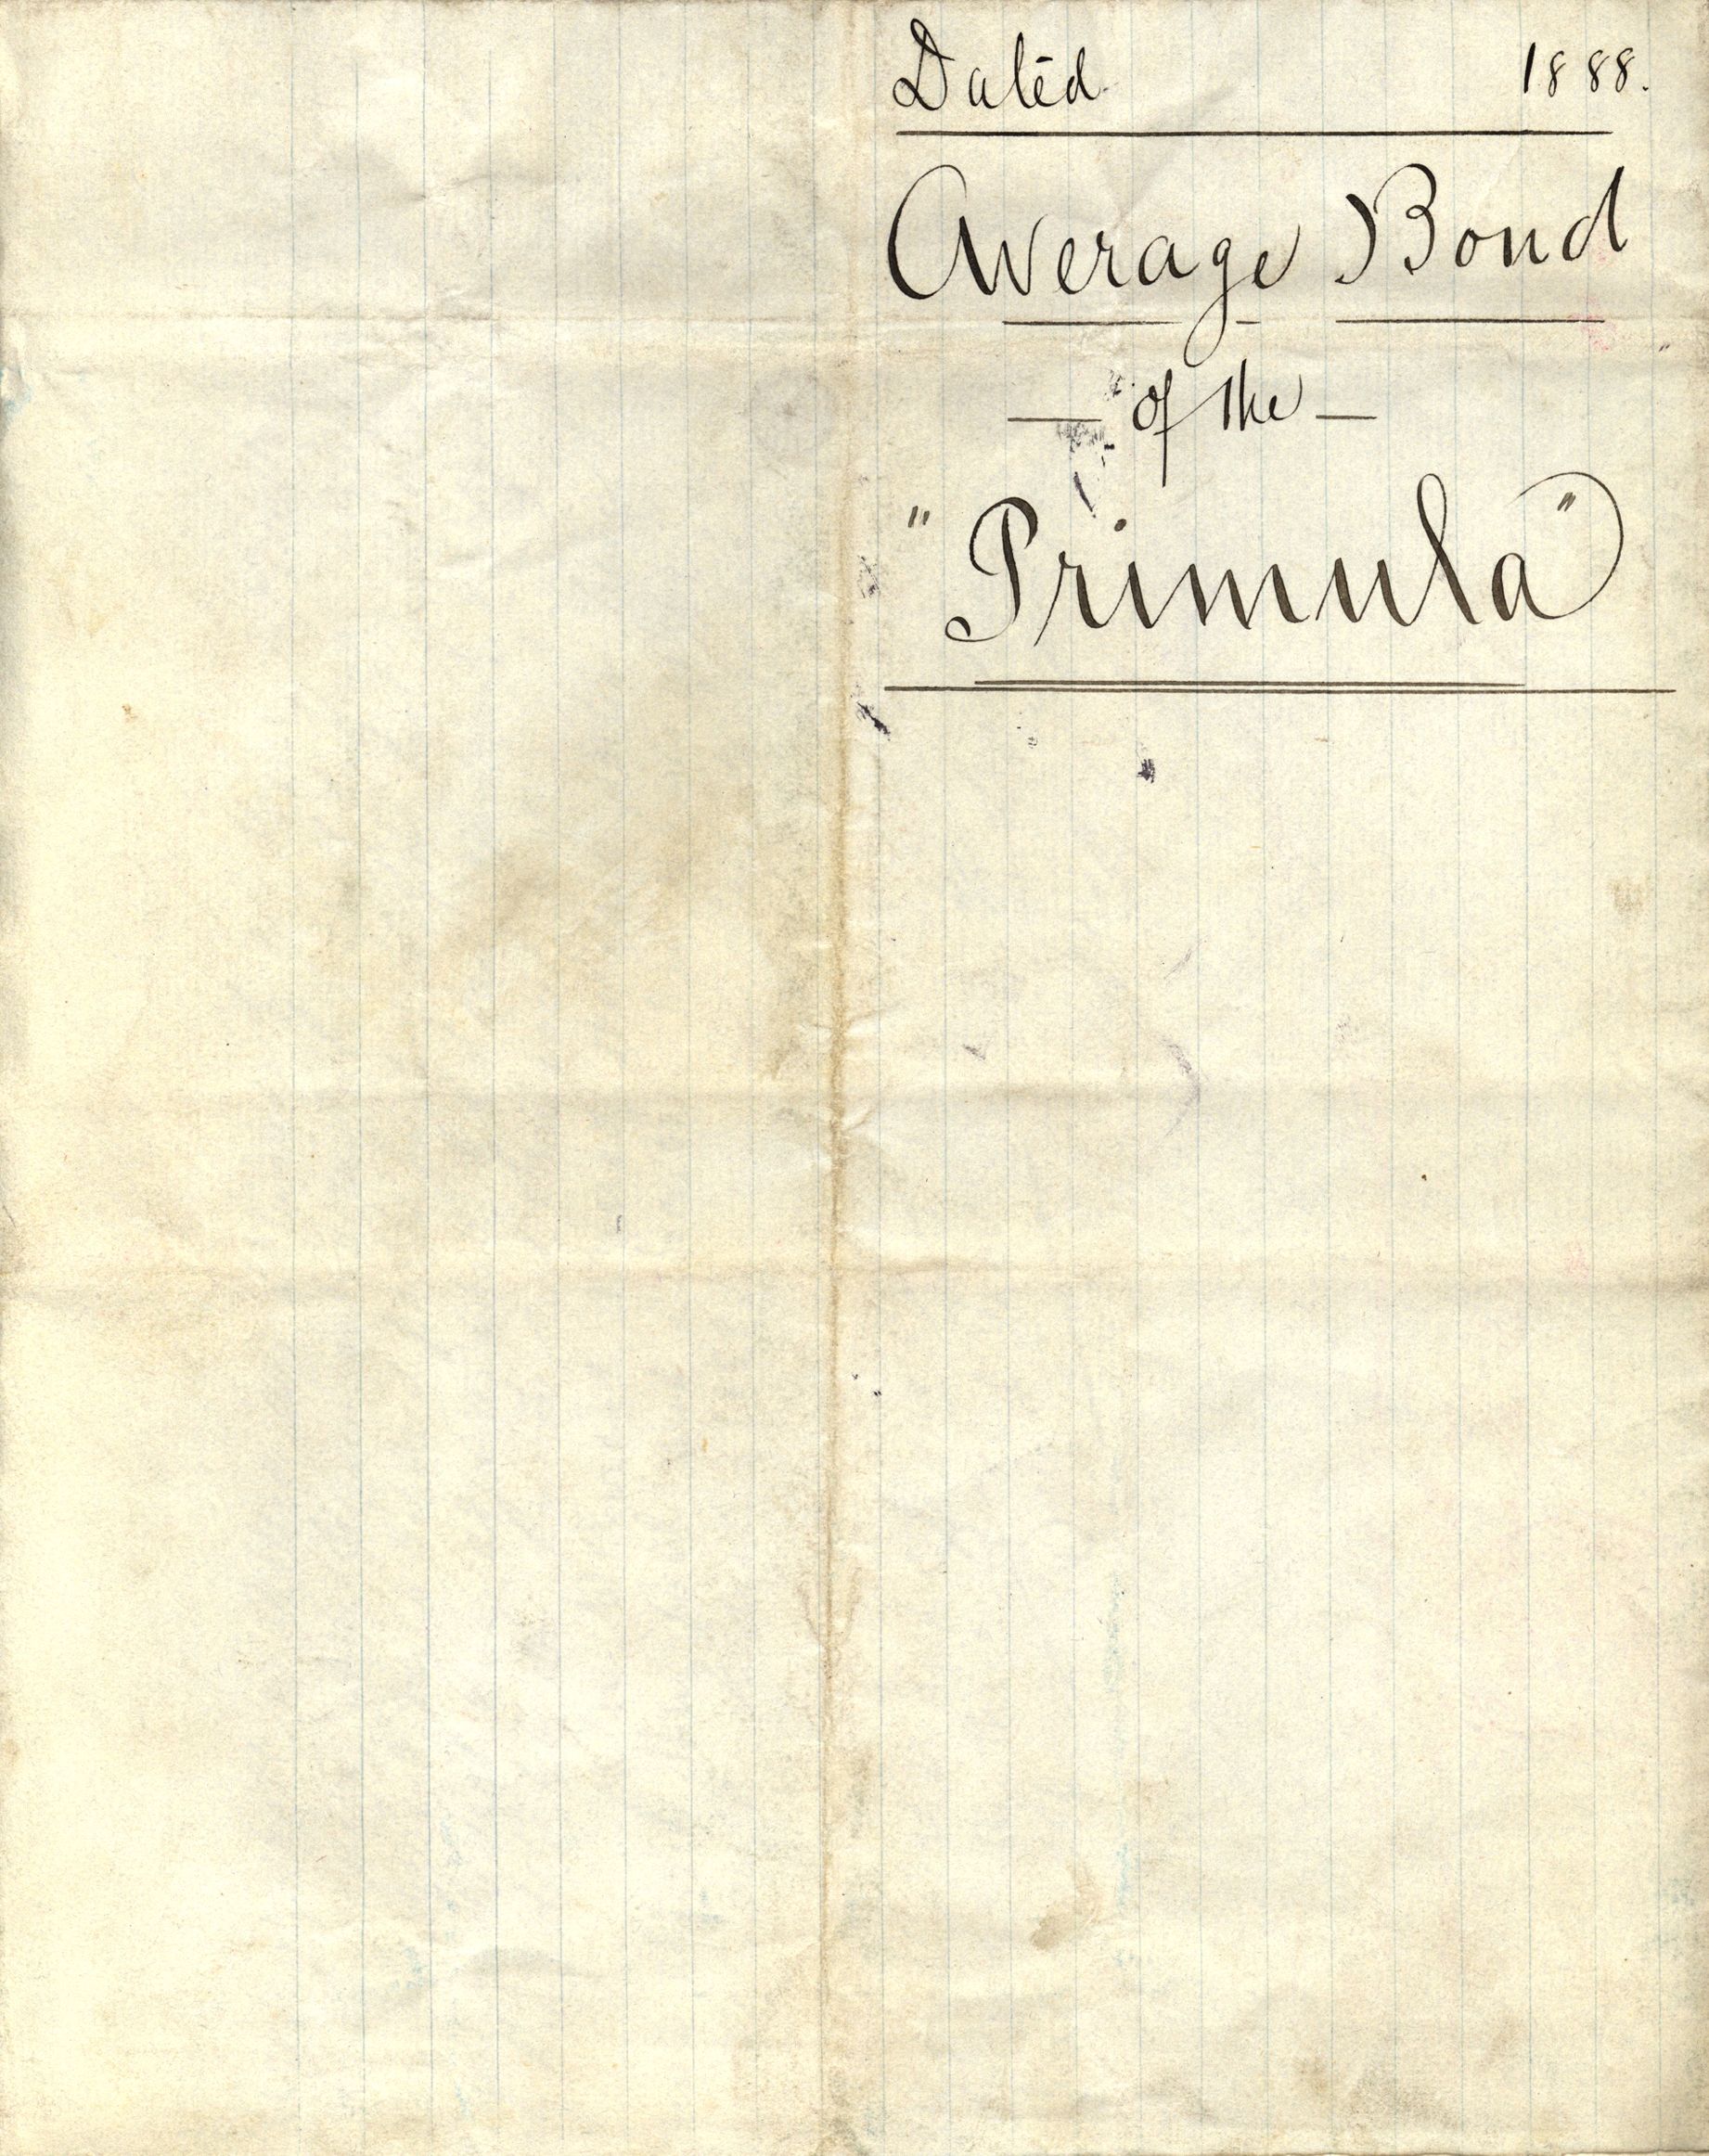 Dated 1888.
Average Bond
— of the —
"Primula"